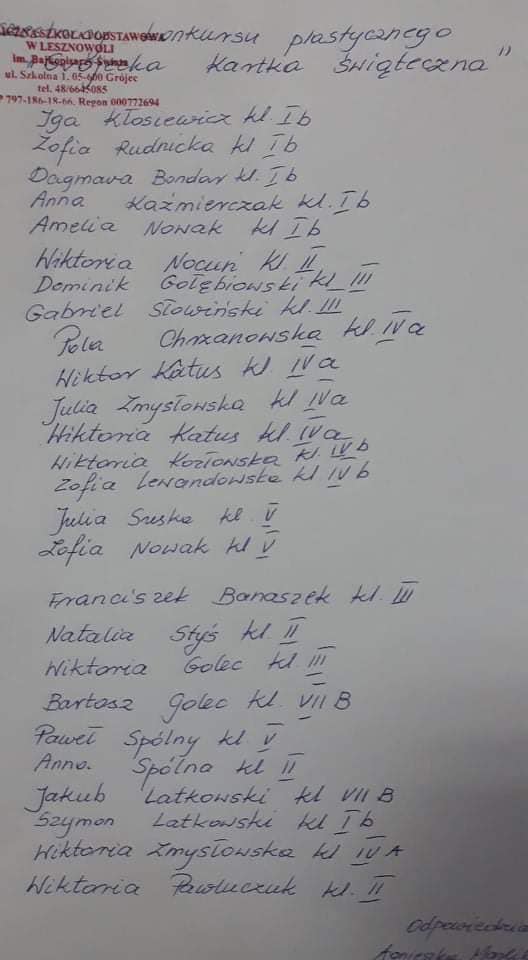 konkursu plastycznego
SZKOŁA PODSTAWOWA
W LESZNOWOLI
im. Bajkopisarzy Świata
ul. Szkolna 1, 05-600 Grójec
tel. 48/6645085
797-186-18-66, Regon 000772694
Kartka Świąteczna"
Iga Kłosiewicz kl Ib
Zofia Rudnicka kl Ib
Dagmara Bondar kl. Ib
Anna Kaźmierczak kl. Ib
Amelia Nowak kl Ib
Wiktoria Nocuń kl. II
Dominik Gołębiowski kl III
Gabriel Słowiński kl. III
Pola Chrzanowska kl. IVa
Wiktor Katus kl. IVa
Julia Zmysłowska kl IVa
Wiktoria Katus kl. IVa
Wiktoria Kozłowska kl. IVb
Zofia Lewandowska kl IVb
Julia Suska kl. V
Zofia Nowak kl V
Franciszek Banaszek kl. III
Natalia Styś kl. II
Wiktoria Golec kl. III
Bartosz Golec kl. VII B
Paweł Spólny kl. V
Anna Spólna kl II
Jakub Latkowski kl VII B
Szymon Latkowski kl Ib
Wiktoria Zmysłowska kl IV A
Wiktoria Pawluczuk kl. II
Agnieszka